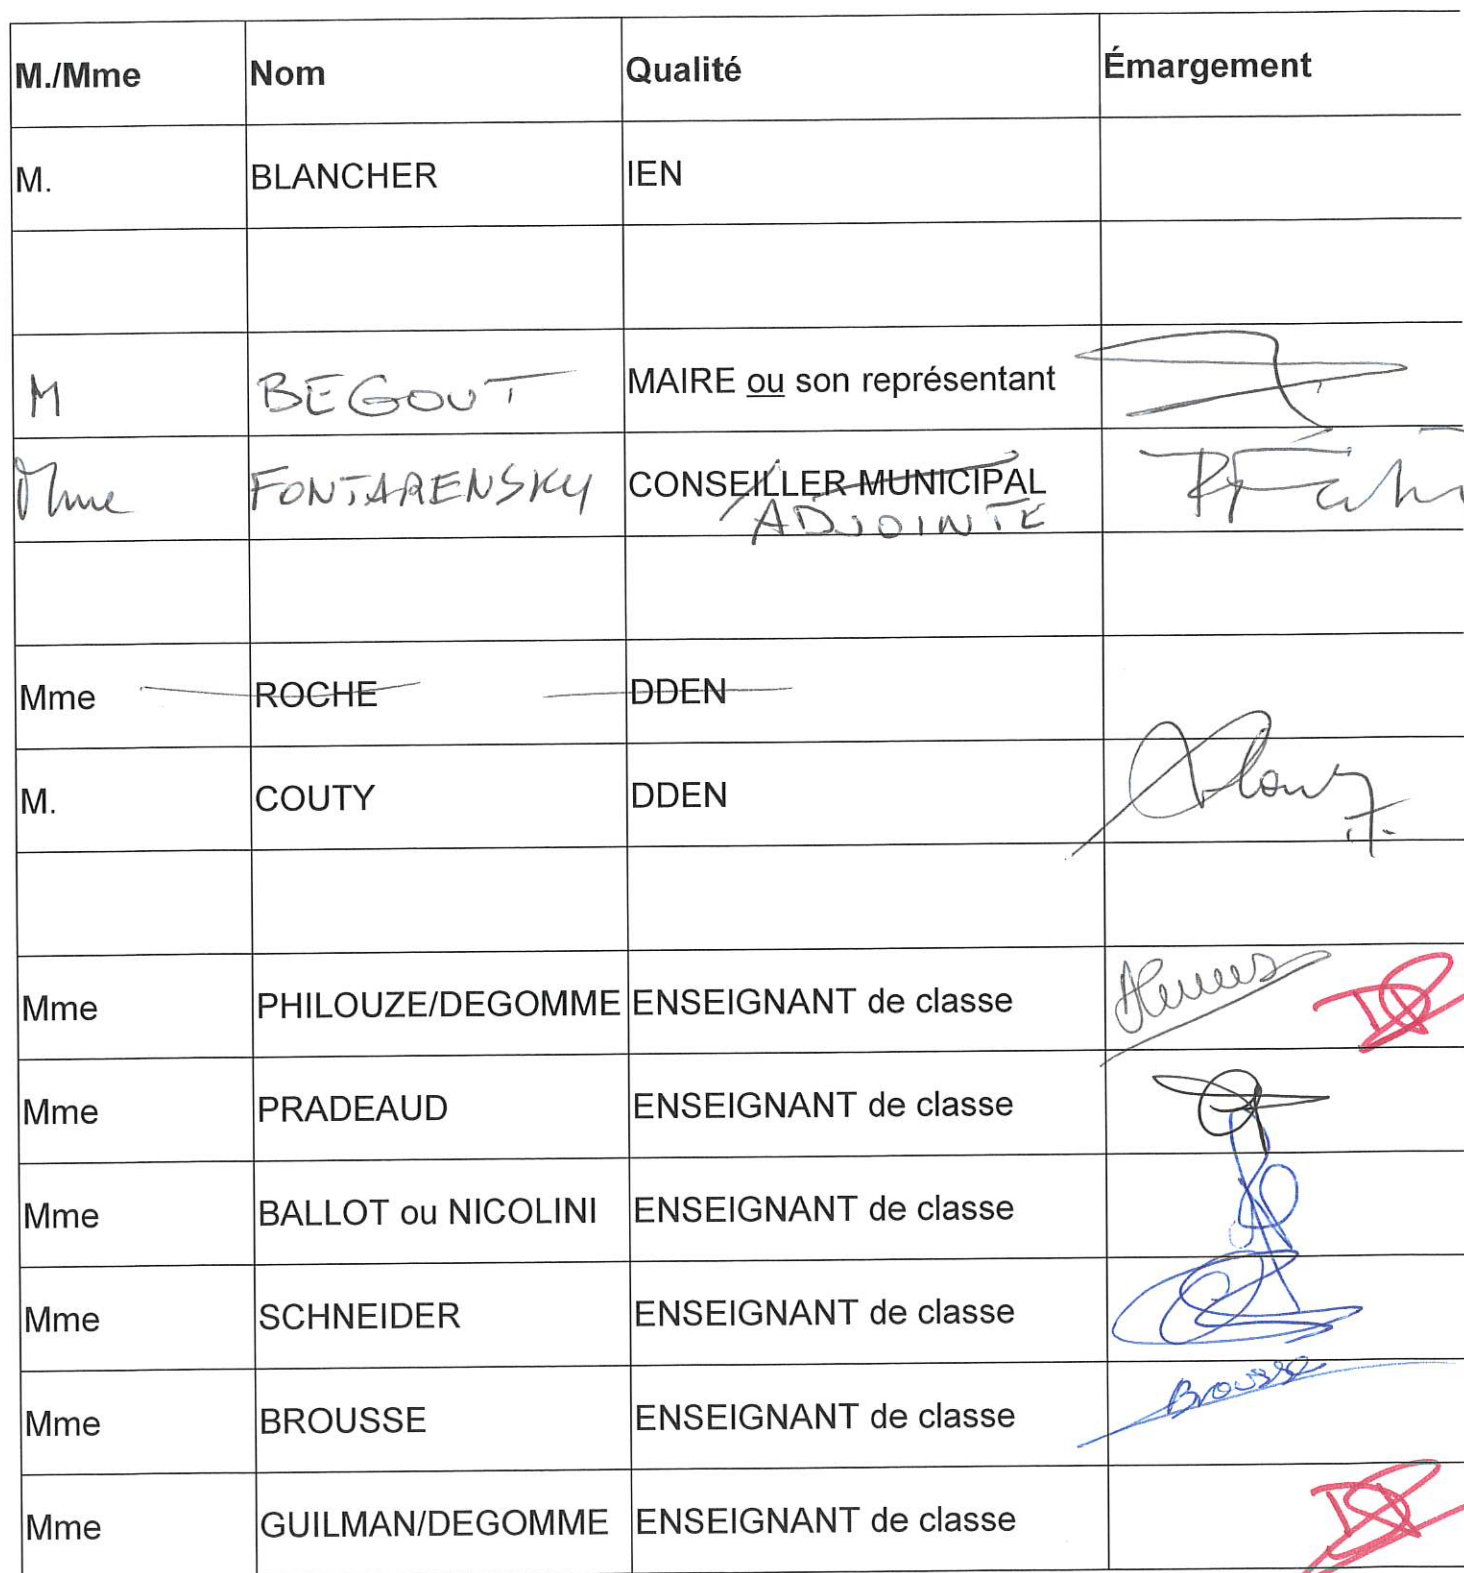 M./Mme Nom Qualité Émargement
M. BLANCHER IEN
M BEGOUT MAIRE ou son représentant
Mme FONTARENSKY CONSEILLER MUNICIPAL
ADJOINTE
Mme ROCHE DDEN
M. COUTY DDEN
Mme PHILOUZE/DEGOMME ENSEIGNANT de classe
Mme PRADEAUD ENSEIGNANT de classe
Mme BALLOT ou NICOLINI ENSEIGNANT de classe
Mme SCHNEIDER ENSEIGNANT de classe
Mme BROUSSE ENSEIGNANT de classe Brousse
Mme GUILMAN/DEGOMME ENSEIGNANT de classe